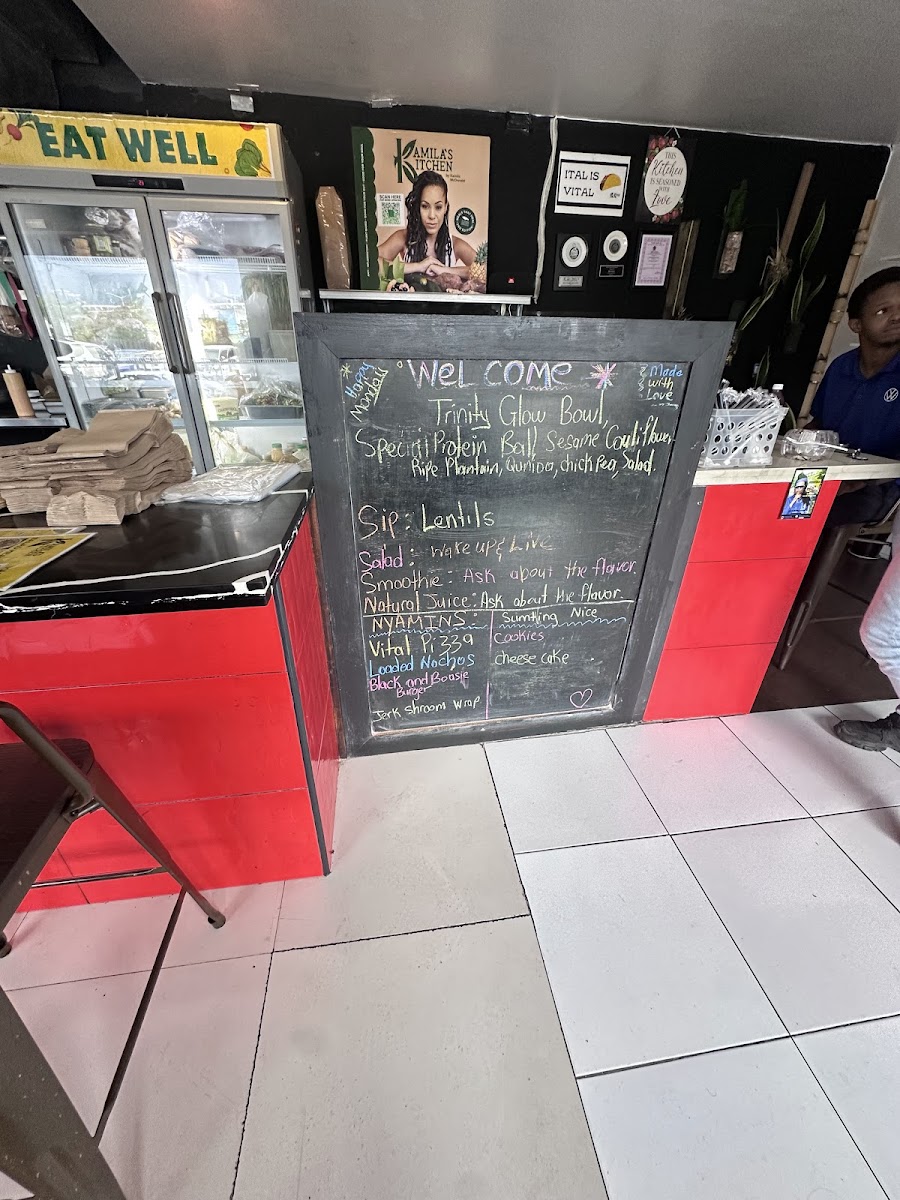 EAT WELL
KAMILA'S
KITCHEN
by Kamila McDonald
SCAN HERE
ITAL IS
VITAL
THIS
Kitchen
IS SEASONED
WITH
Love
Happy
Monday
WelCOME
Made
with
Love
Trinity Glow Bowl,
Special Protein Ball, Sesame Cauliflower,
Ripe Plantain, Quinoa, chick Pea, Salad.
Sip: Lentils
Salad: Wake up & Live
Smoothie: Ask about the flavor.
Natural Juice: Ask about the flavor
NYAMINS:
Sumting Nice
Vital Pizza
Cookies
Loaded Nachos
cheese cake
Black and Boasie
Burger
Jerk shroom wrap